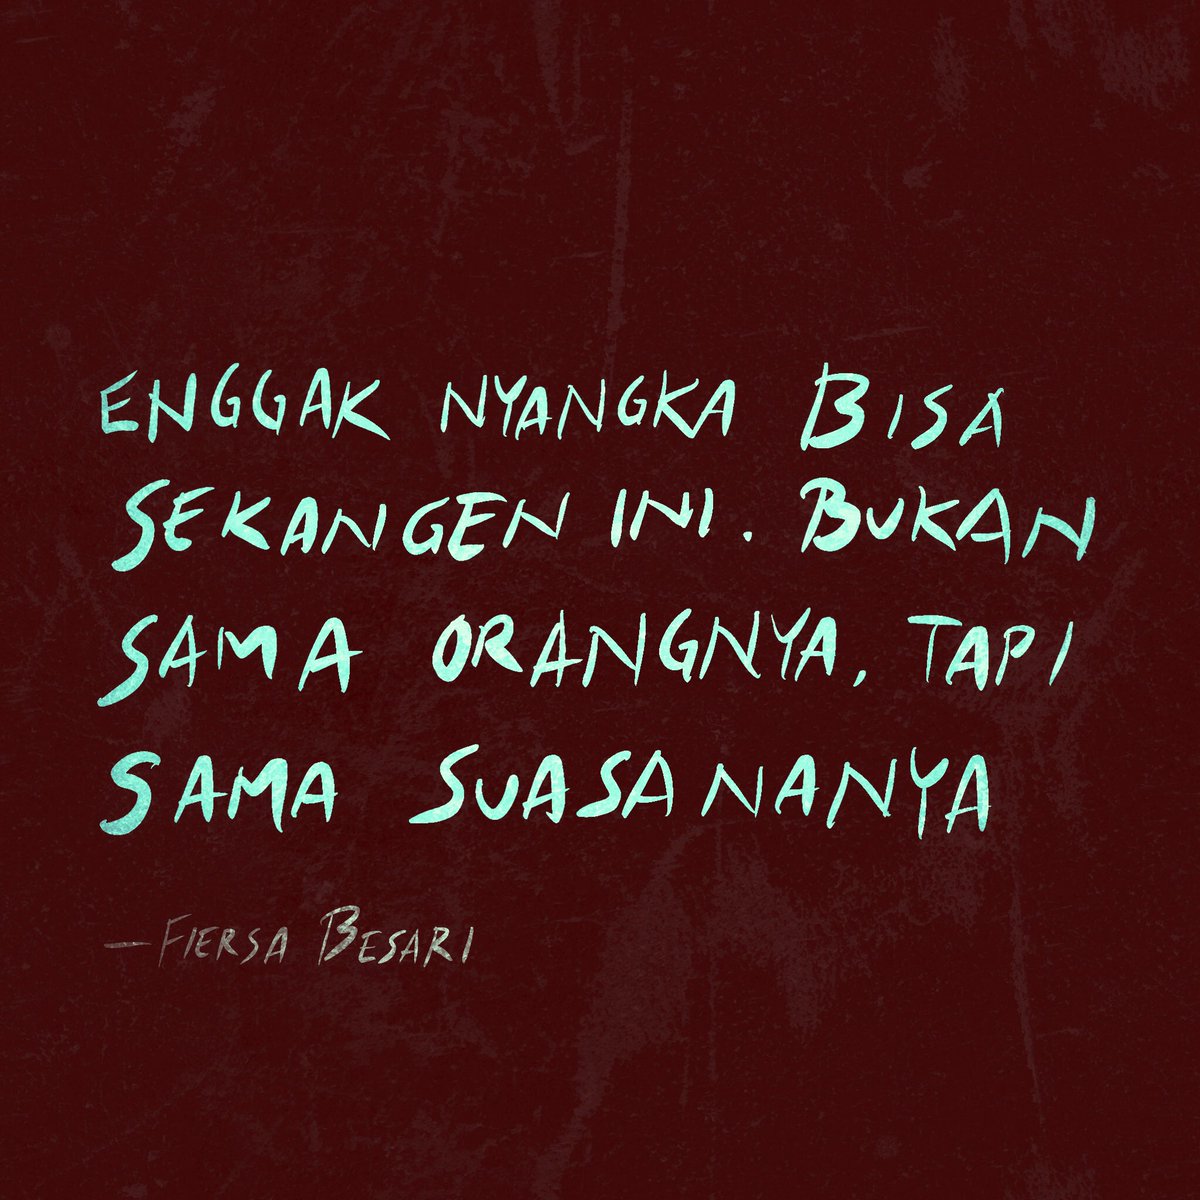 ENGGAK NYANGKA BISA
SEKANGEN INI. BUKAN
SAMA ORANGNYA, TAPI
SAMA SUASANANYA
—FIERSA BESARI